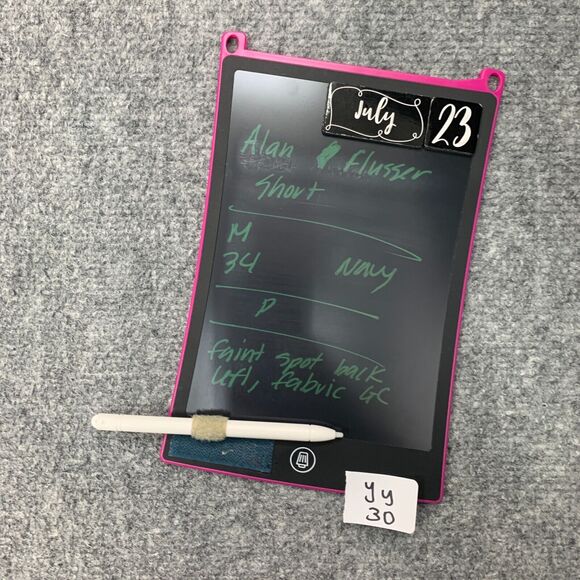 July 23
Alan Flusser
Short
M
34 Navy
P
faint spot back
left, fabric GC
yy
30